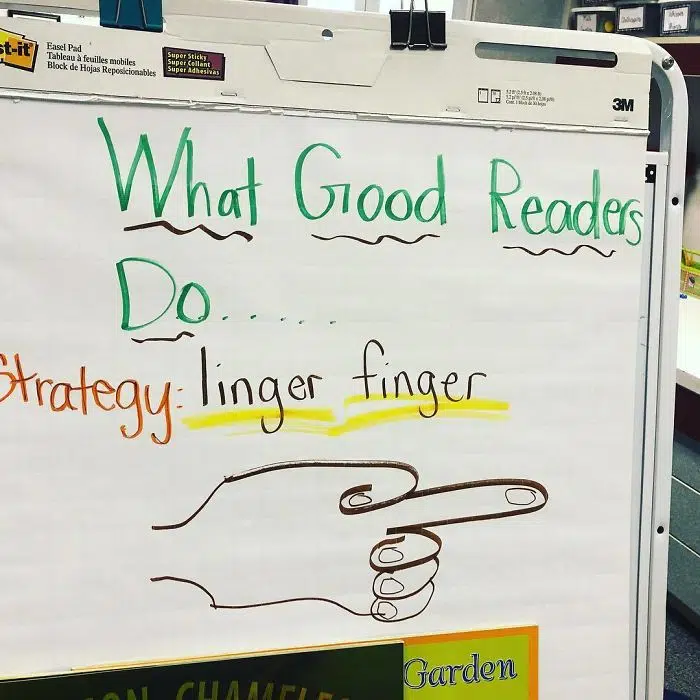 st-it
Easel Pad
Tableau à feuilles mobiles
Block de Hojas Reposicionables
Super Sticky
Super Collant
Super Adhesivas
3M
What Good Readers
Do......
Strategy: linger finger
Garden
ON CHAMELE